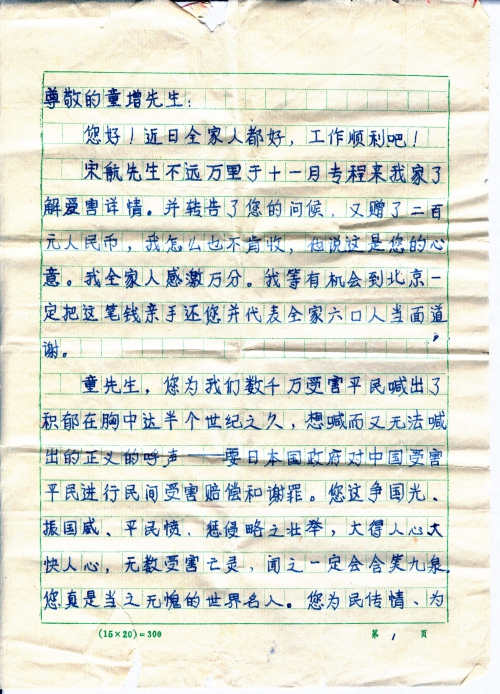 尊敬的童增先生：
您好！近日全家人都好，工作顺利吧！
宋航先生不远万里于十一月专程来我家了
解受害详情。并转告了您的问候，又赠了二百
元人民币，我怎么也不肯收，他说这是您的心
意。我全家人感激万分。我等有机会到北京一
定把这笔钱亲手还您并代表全家六口人当面道
谢。
童先生，您为我们数千万受害平民喊出了
积郁在胸中达半个世纪之久，想喊而又无法喊
出的正义的呼声——要日本国政府对中国受害
平民进行民间受害赔偿和谢罪。您这争国光、
振国威、平民愤、惩侵略之壮举，大得人心大
快人心，无数受害亡灵，闻之一定会含笑九泉。
您真是当之无愧的世界名人。您为民传情、为
(15×20)=300
第 1 页